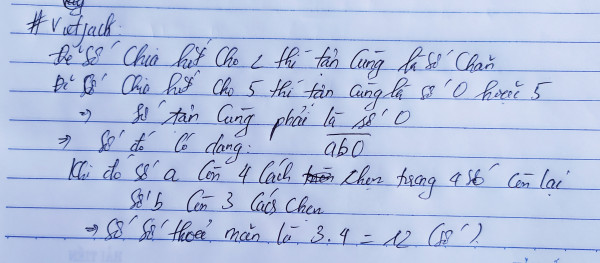 # Vietjack:
Để số chia hết cho 2 thì tận cùng là số chẵn
Để số chia hết cho 5 thì tận cùng là số 0 hoặc 5
⇒ số tận cùng phải là số 0
⇒ số đó có dạng: ab0
Khi đó số a còn 4 cách chọn trong 4 số còn lại
số b còn 3 cách chọn
⇒ số số thoả mãn là 3.4 = 12 (số).